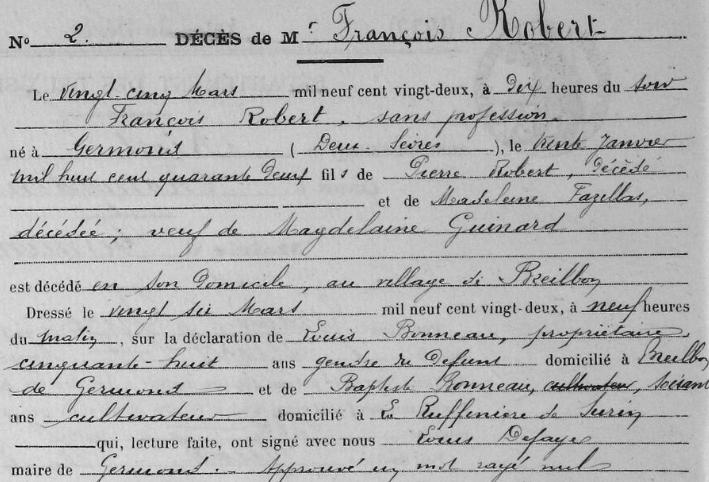 No 2. DÉCÈS de Mr François Robert
Le vingt cinq Mars mil neuf cent vingt-deux, à dix heures du soir
François Robert, sans profession
né à Germond (Deux-Sèvres), le trente Janvier
mil huit cent quarante deux fils de Pierre Robert, décédé
et de Madeleine Fazellas,
décédée; veuf de Magdelaine Guinard
est décédé en son domicile, au village de Breilbon
Dressé le vingt six Mars mil neuf cent vingt-deux, à neuf heures
du matin, sur la déclaration de Louis Bonneau, propriétaire,
cinquante-huit ans gendre du défunt domicilié à Breilbon
de Germond et de Baptiste Bonneau, cultivateur, soixante
ans cultivateur domicilié à La de Surin
qui, lecture faite, ont signé avec nous Louis Defaye
maire de Germond. Approuvé un mot rayé nul